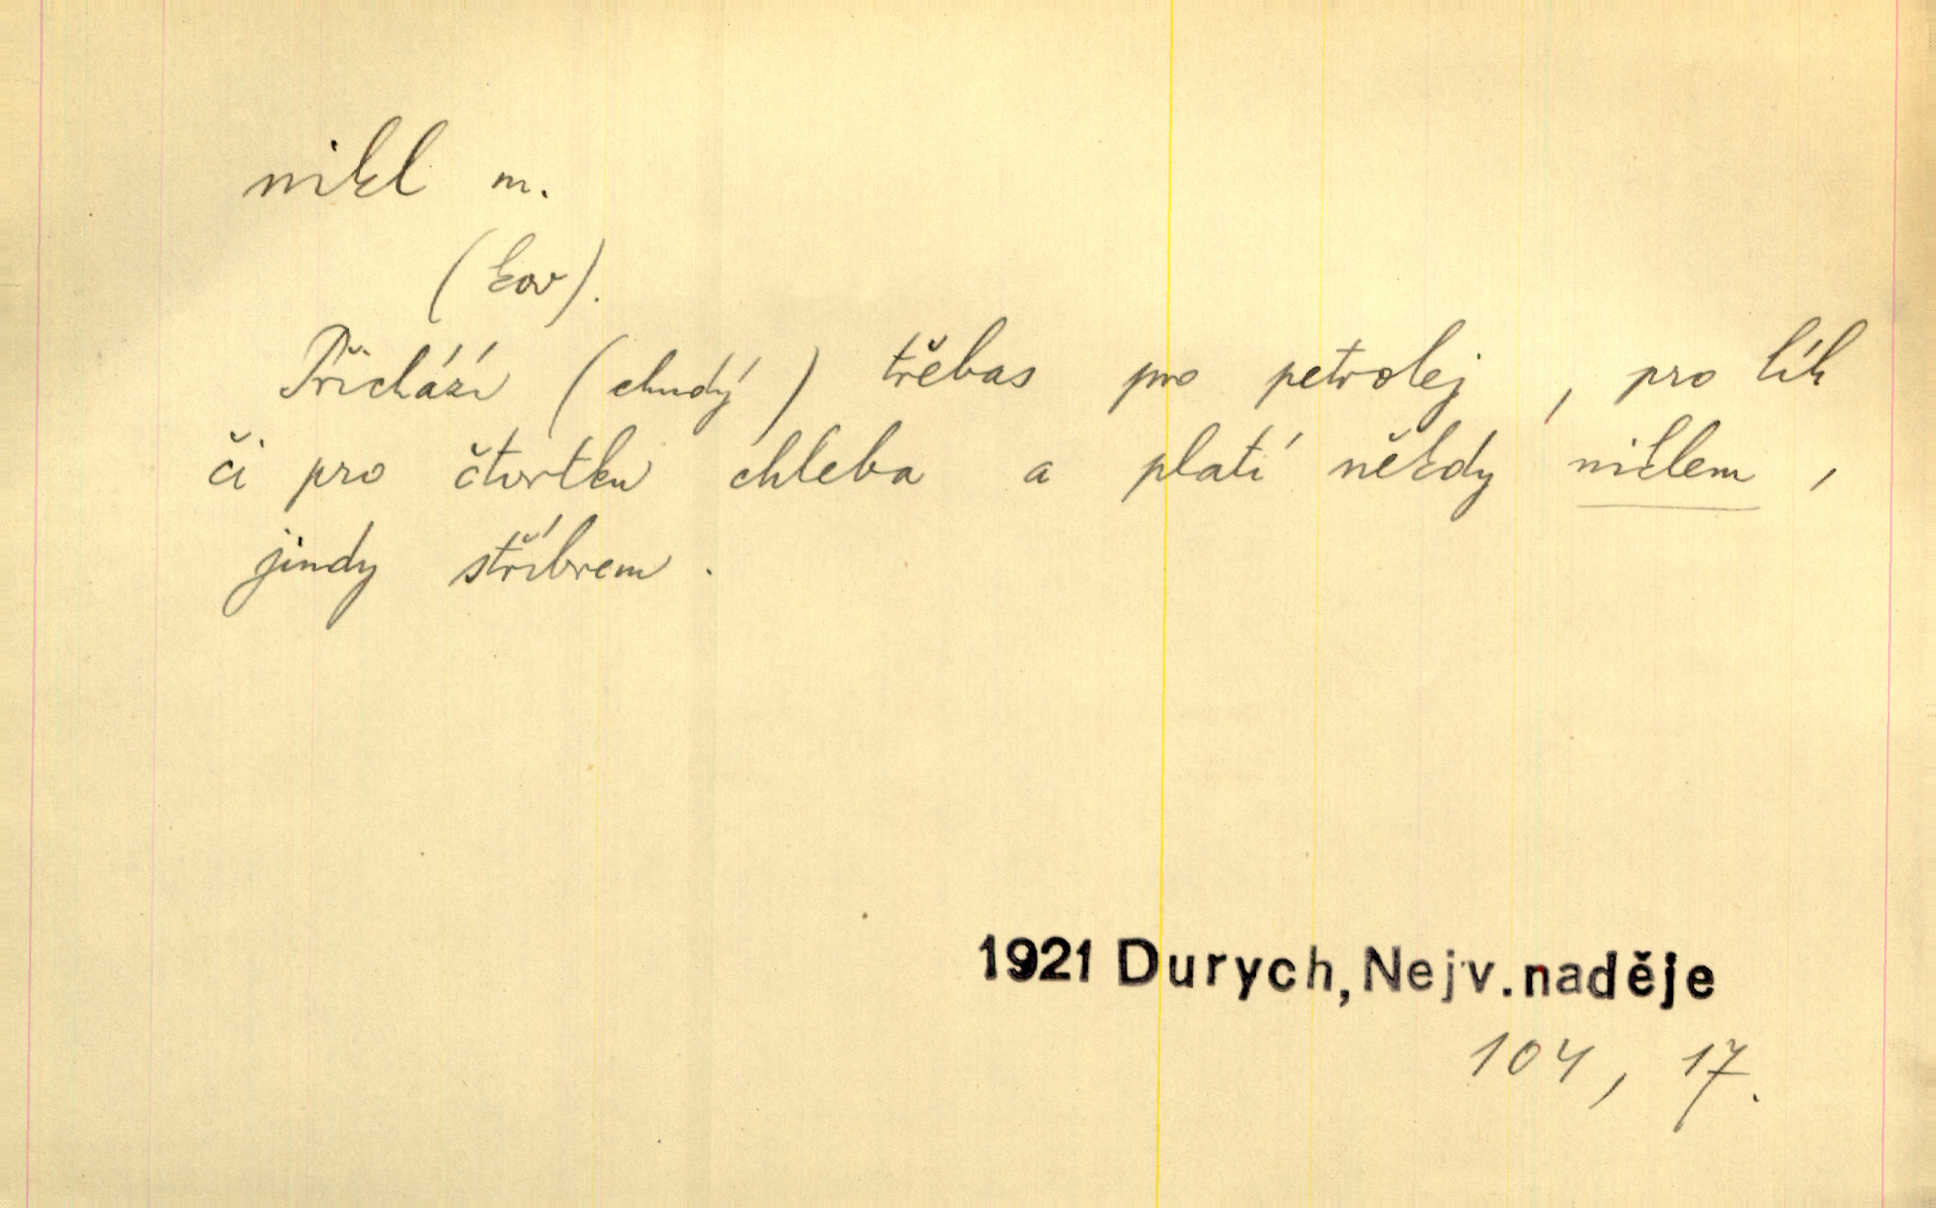 nikl m.
(kov).
Přichází (chudý) třebas pro petrolej, pro lík
či pro čtvrtku chleba a platí někdy niklem,
jindy stříbrem.
1921 Durych, Nejv. naděje
104, 17.